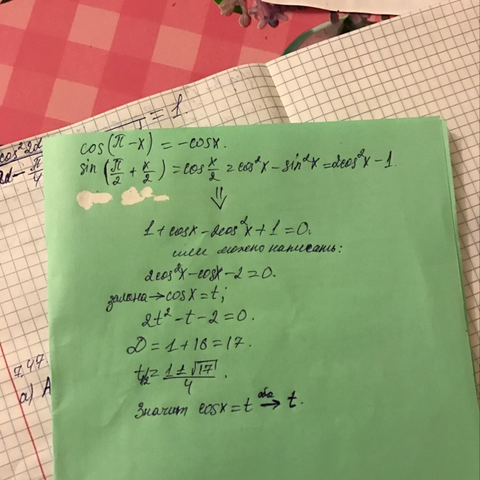 = 1
cos²2α
2α - π/4
cos(π-x) = -cosx.
sin(π/2 + x/2) = cos x/2 = cos²x - sin²x = 2cos²x - 1.
⇓
1 + cosx - 2cos²x + 1 = 0.
или можно написать:
2cos²x - cosx - 2 = 0.
замена → cosx = t;
2t² - t - 2 = 0.
D = 1 + 16 = 17.
t½ = (1 ± √17)/4.
Значит cosx = t оба → t.
7.47.
а)